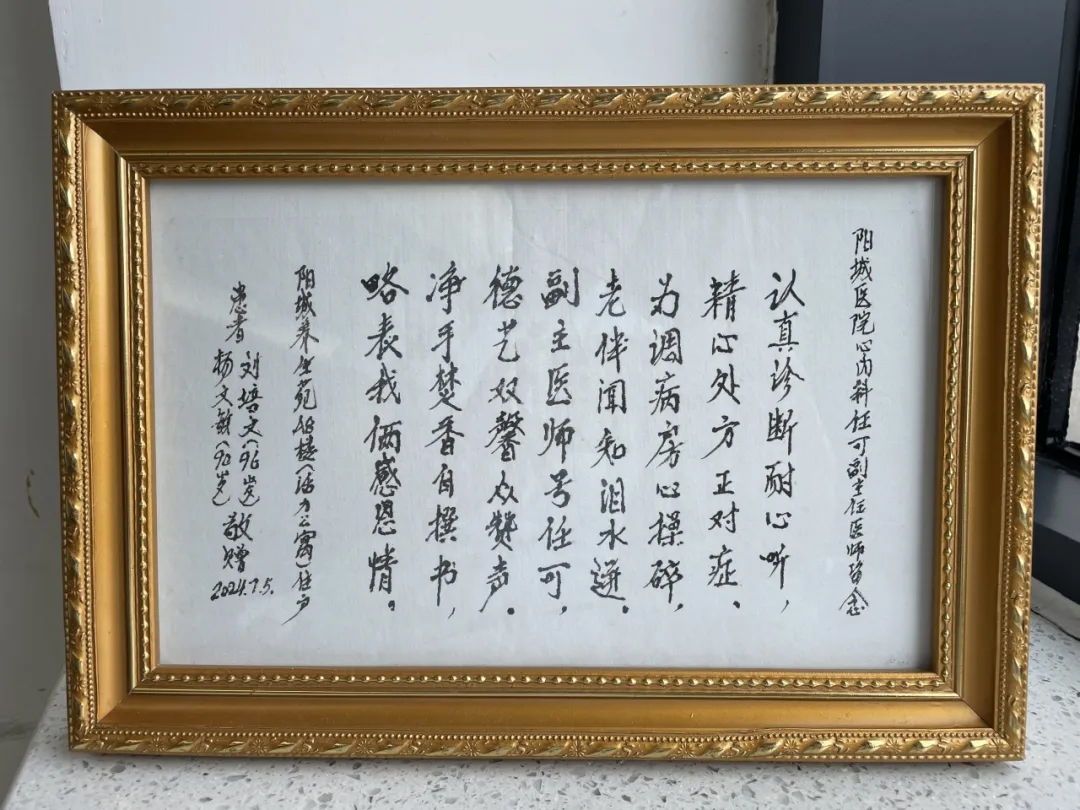 阳城医院心内科任可副主任医师留念
认真诊断耐心听，
精心处方正对症、
为调病房心操碎，
老伴闻知泪水迸。
副主医师号任可，
德艺双馨众赞声。
净手焚香自撰书，
略表我俩感恩情。
阳城养生苑4#楼（活力公寓）住户
患者 刘培文（96岁）
杨文敏（90岁） 敬赠
2024.7.5.